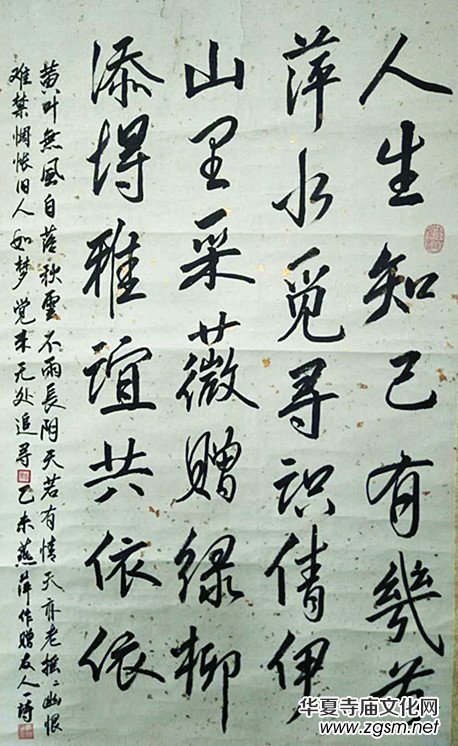 人生知己有幾
萍水觅寻识倩伊
山里采薇赠绿柳
添得雅谊共依依
黄叶無風自落秋雲不雨長阴天若有情天亦老摇々幽恨
难禁惆怅旧人如梦觉来无处追寻 乙未燕萍作赠友人一诗
华夏寺庙文化网
www.zgsm.net